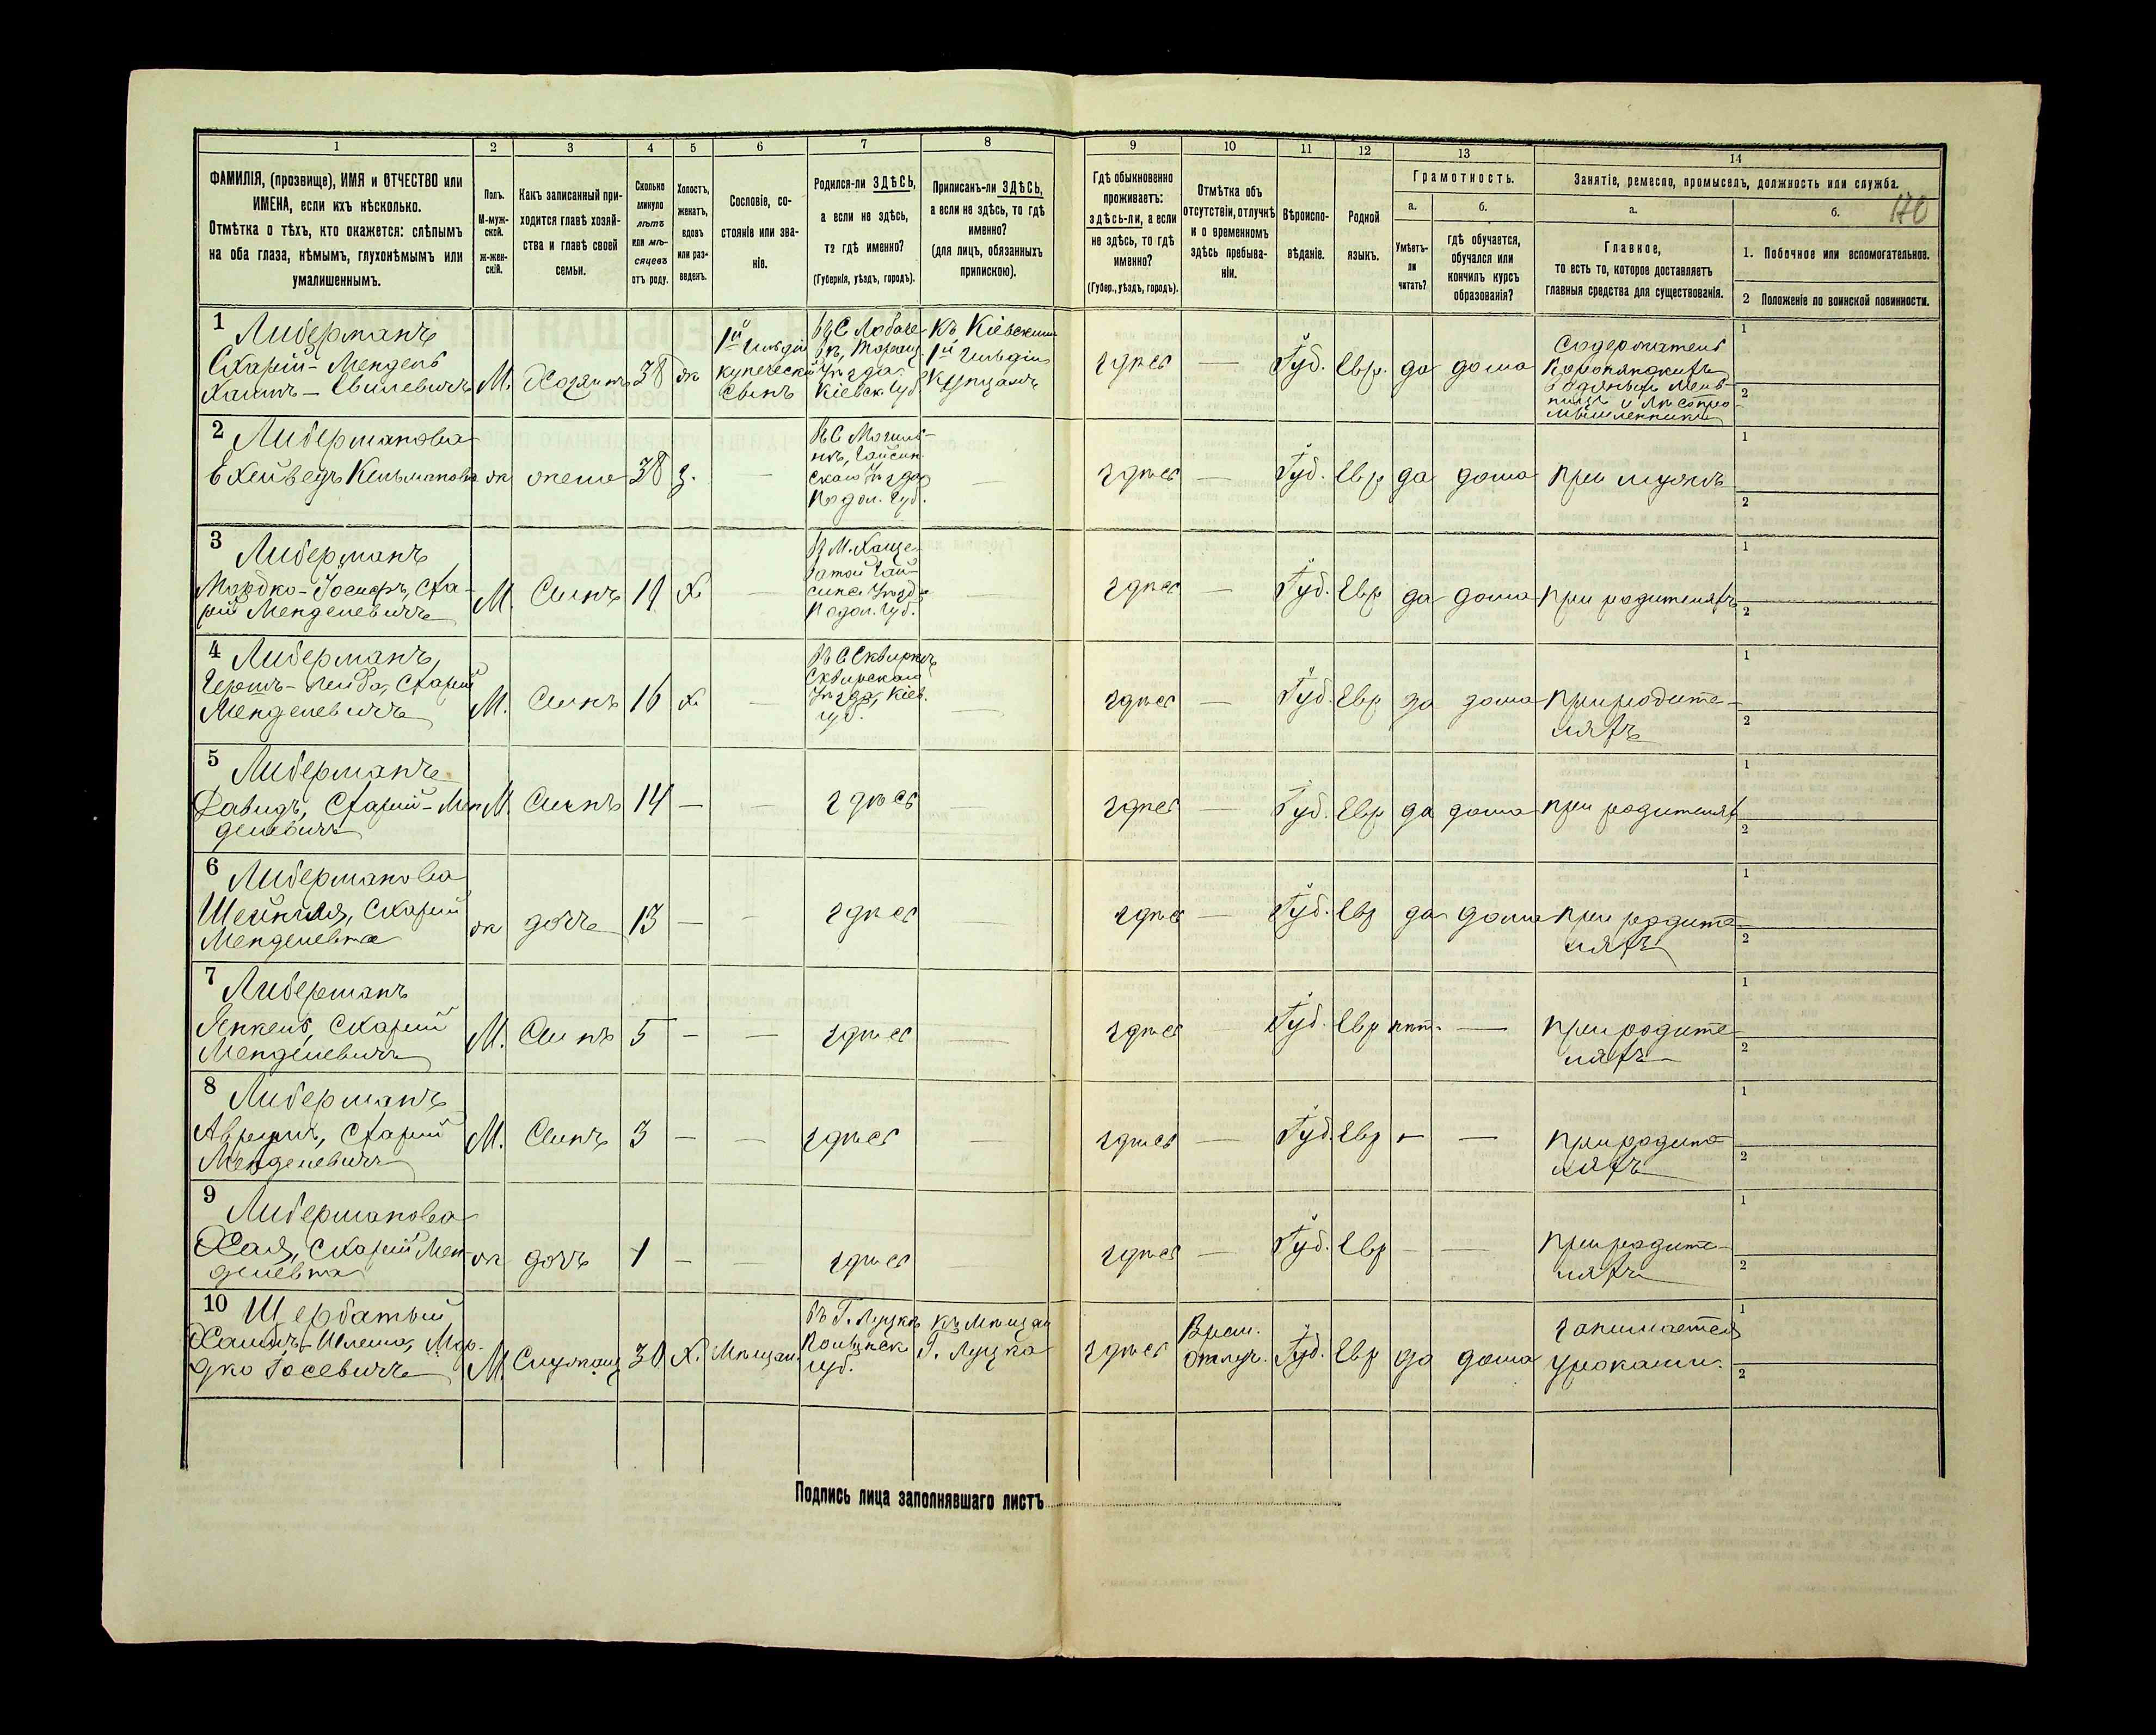 1 2 3 4 5 6 7 8 9 10 11 12 13 14
ФАМИЛІЯ, (прозвище), ИМЯ и ОТЧЕСТВО или
ИМЕНА, если ихъ нѣсколько.
Отмѣтка о тѣхъ, кто окажется: слѣпымъ
на оба глаза, нѣмымъ, глухонѣмымъ или
умалишеннымъ.
Полъ.
М-муж-
ской.
Ж-жен-
скій.
Какъ записанный при-
ходится главѣ хозяй-
ства и главѣ своей
семьи.
Сколько
минуло
лѣтъ
или мѣ-
сяцевъ
отъ роду.
Холостъ,
женатъ,
вдовъ
или раз-
веденъ.
Сословіе, со-
стояніе или зва-
ніе.
Родился-ли ЗДѢСЬ,
а если не здѣсь,
то гдѣ именно?
(Губернія, уѣздъ, городъ).
Приписанъ-ли ЗДѢСЬ,
а если не здѣсь, то гдѣ
именно?
(для лицъ, обязанныхъ
припискою).
Гдѣ обыкновенно
проживаетъ:
здѣсь-ли, а если
не здѣсь, то гдѣ
именно?
(Губер., уѣздъ, городъ).
Отмѣтка объ
отсутствіи, отлучкѣ
и о временномъ
здѣсь пребыва-
ніи.
Вѣроиспо-
вѣданіе.
Родной
языкъ.
Грамотность.
а.
Умѣетъ-
ли
читать?
б.
гдѣ обучается,
обучался или
кончилъ курсъ
образованія?
Занятіе, ремесло, промыселъ, должность или служба.
а.
Главное,
то есть то, которое доставляетъ
главныя средства для существованія.
б.
170
1. Побочное или вспомогательное.
2 Положеніе по воинской повинности.
1 Либерманъ
Схарій-Мендель
Хаимъ-
М.
Хозяинъ
38
ж
1й гильдіи
купеческій
сынъ
Уѣзда
Кіевск. Губ.
Къ Кіевскимъ
1й гильдіи
Купцамъ
здѣсь
—
Іуд.
Евр.
да
дома
Содержатель
мель-
ницъ и лѣсопро-
мышленникъ
1
2
2 Либерманова
Кельманова
ж
жена
38
з.
—
Въ С Могиль-
нѣ, Гайсин-
скаго Уѣзда
Подол. Губ.
—
здѣсь
—
Іуд.
Евр
да
дома
при мужѣ
1
2
3 Либерманъ
Мордко-Іосифъ, Сха-
рій Менделевичъ
М.
Сынъ
19
Х
—
Въ М. Хаще-
ватой Гай-
синс. Уѣзда
Подол. Губ.
—
здѣсь
—
Іуд.
Евр
да
дома
при родителяхъ
1
2
4 Либерманъ,
Гершъ-Лейба, Схарій
Менделевичъ
М.
Сынъ
16
Х
—
Въ С Сквиркѣ
Сквирскаго
Уѣзда, Кіев.
губ.
—
здѣсь
—
Іуд.
Евр
да
дома
при родите-
ляхъ
1
2
5 Либерманъ
Давидъ, Схарій-Мен
делевичъ
М.
Сынъ
14
—
—
здѣсь
—
здѣсь
—
Іуд.
Евр
да
дома
при родителях
1
2
6 Либерманова
Шейндля, Схарій
Менделевна
ж
дочь
13
—
—
здѣсь
—
здѣсь
—
Іуд.
Евр
да
дома
при родите-
ляхъ
1
2
7 Либерманъ
Янкель, Схарій
Менделевичъ
М.
Сынъ
5
—
—
здѣсь
—
здѣсь
Іуд.
Евр
нѣт.
—
при родите-
ляхъ
1
2
8 Либерманъ
Аврумъ, Схарій
Менделевичъ
М.
Сынъ
3
—
—
здѣсь
—
здѣсь
—
Іуд.
Евр
—
—
при родите
ляхъ
1
2
9 Либерманова
Хая, Схарій Мен-
делевна
ж
дочь
1
—
—
здѣсь
—
здѣсь
—
Іуд.
Евр
—
—
при родите-
ляхъ
1
2
10 Щербатый
Хаимъ-Шлема, Мор-
дко Іосевичъ
М.
Служащ
30
Х.
Мѣщан.
въ Г. Луцкѣ
Волынск
губ.
Къ Мѣщан
Г. Луцка
здѣсь
Врем.
отлуч.
Іуд.
Евр
да
дома
занимается
уроками.
1
2
Подпись лица заполнявшаго листъ